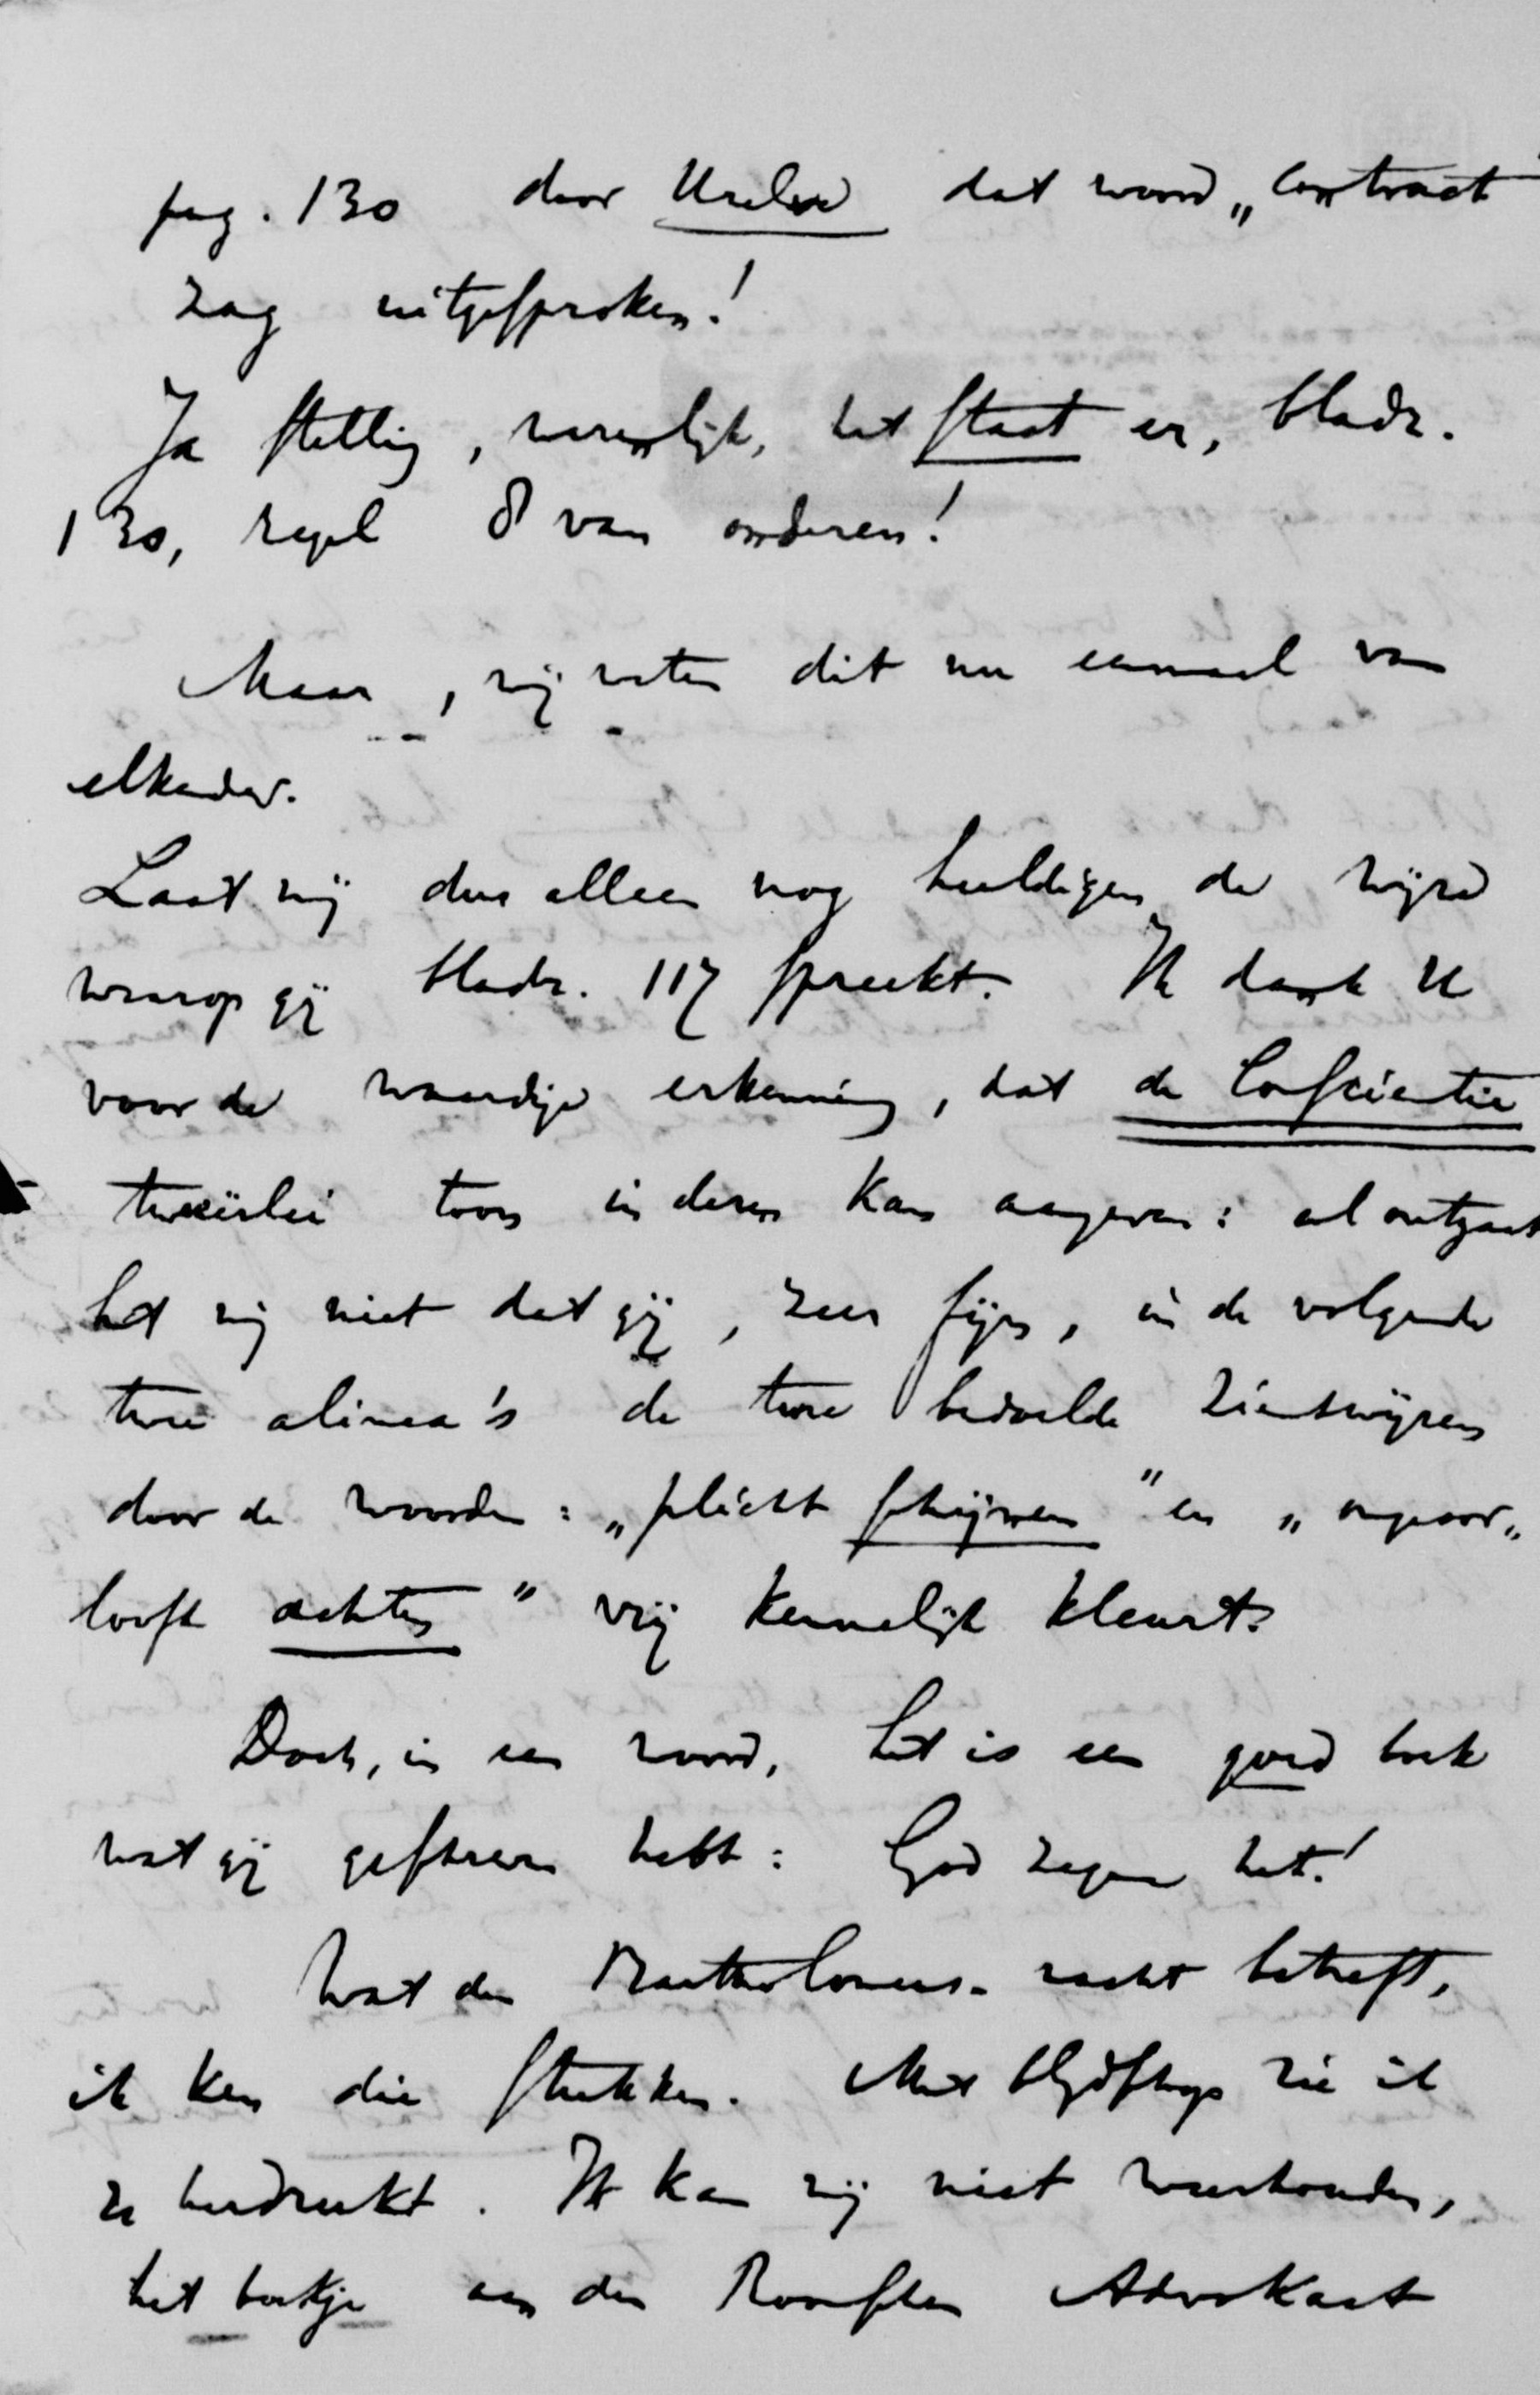 pag. 130 door Uzelve dat woord „Contract
zag uitgesproken!
Ja stellig, waarlijk, het staat er, bladz.
130, regel 8 van onderen!
Maar, wij weten dit nu eenmaal van
elkander.
Laat mij dus alleen nog huldigen de wijze
waarop gij bladz. 117 spreekt. Ik dank U
voor de waardige erkenning, dat de Consciëntie
tweeërlei toon in dezen kan aangeven: al ontgaat
het mij niet dat gij, zeer fijn, in de volgende
twee alinea's de twee bedoelde zienswijzen
door de woorden: „plicht schijnen" en „ongeoor„
loofd achten" vrij kennelijk kleurt.
Doch, in een woord, het is een goed boek
wat gij geschreven hebt: God zegene het!
Wat den Bartholomeus-nacht betreft,
ik ken die stukken. Met blijdschap zie ik
ze herdrukt. Ik kan mij niet weerhouden,
het boekje aan den Roomschen Advokaat